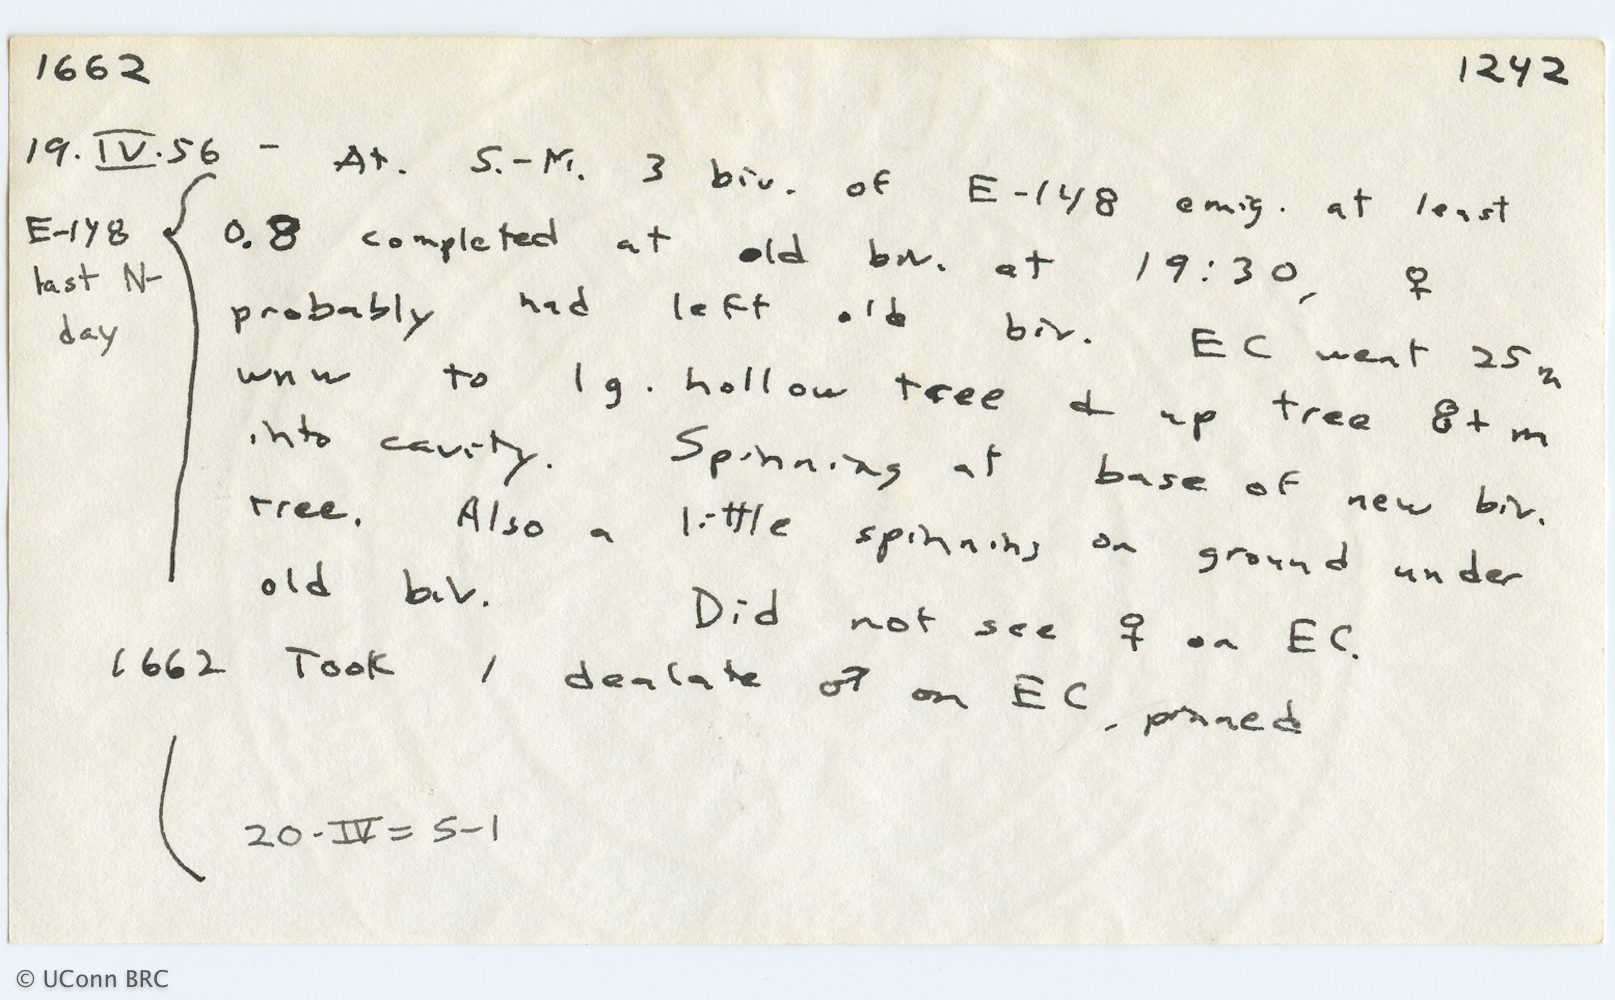 1662 1242
19.IV.56 - At. S.-M. 3 biv. of E-148 emig. at least
E-148 0.8 completed at old biv. at 19:30, ♀
last N- probably had left old biv. EC went 25 m
day wnw to lg. hollow tree & up tree 8+ m
into cavity. Spinning at base of new biv.
tree. Also a little spinning on ground under
old biv. Did not see ♀ on EC.
1662 Took 1 dealate ♂ on EC, pinned
20-IV = S-1
© UConn BRC